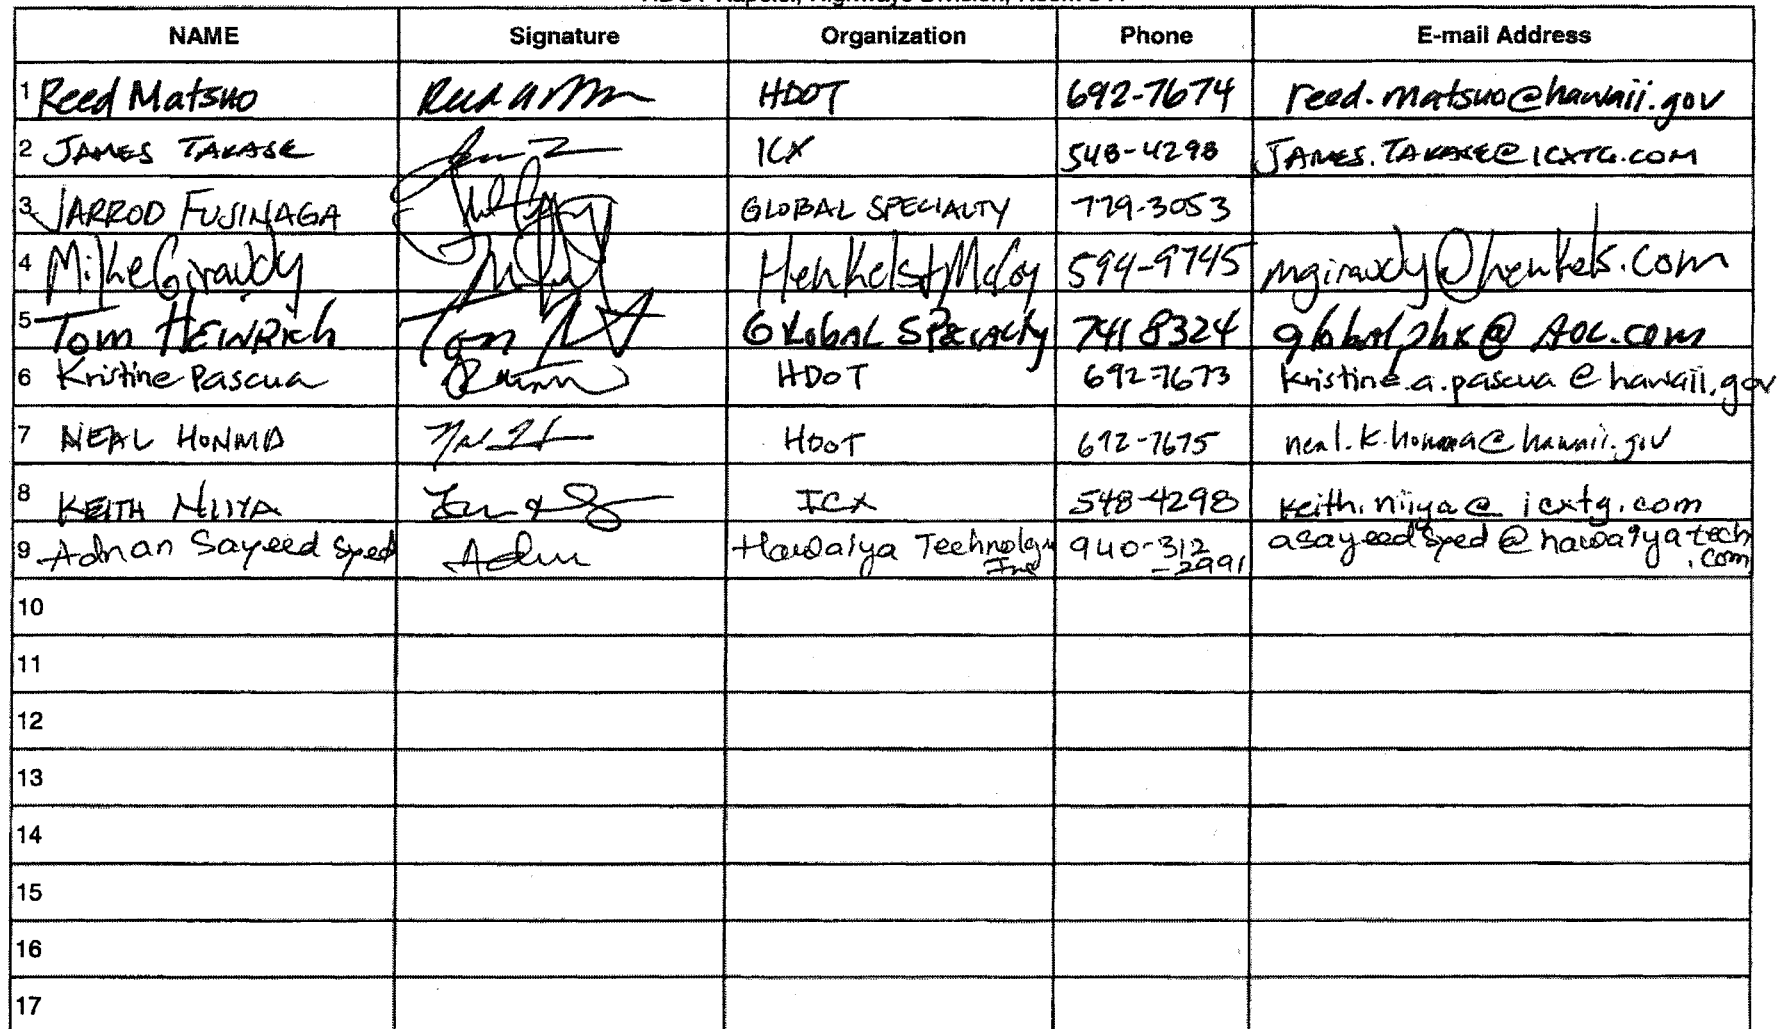 NAME Signature Organization Phone E-mail Address
1 Reed Matsuo HDOT 692-7674 reed.matsuo@hawaii.gov
2 JAMES TAKASE ICX 548-4298 JAMES.TAKASE@ICXTG.COM
3 JARROD FUJINAGA GLOBAL SPECIALTY 779-3053
4 Mike Giraudy Henkels & McCoy 594-9745 mgiraudy@henkels.com
5 Tom HEINRICH GLOBAL SPECIALTY 741 8324 @ AOL.com
6 Kristine Pascua HDOT 692-7673 kristine.a.pascua@hawaii.gov
7 NEAL HONMA HDOT 692-7675 neal.k.honma@hawaii.gov
8 KEITH NIIYA ICX 548-4298 keith.niiya@icxtg.com
9 Adnan Sayeed Syed Adnan Hawaiya Technology 940-312 asayeedsyed@hawaiyatech
Inc -2991 .com
10
11
12
13
14
15
16
17